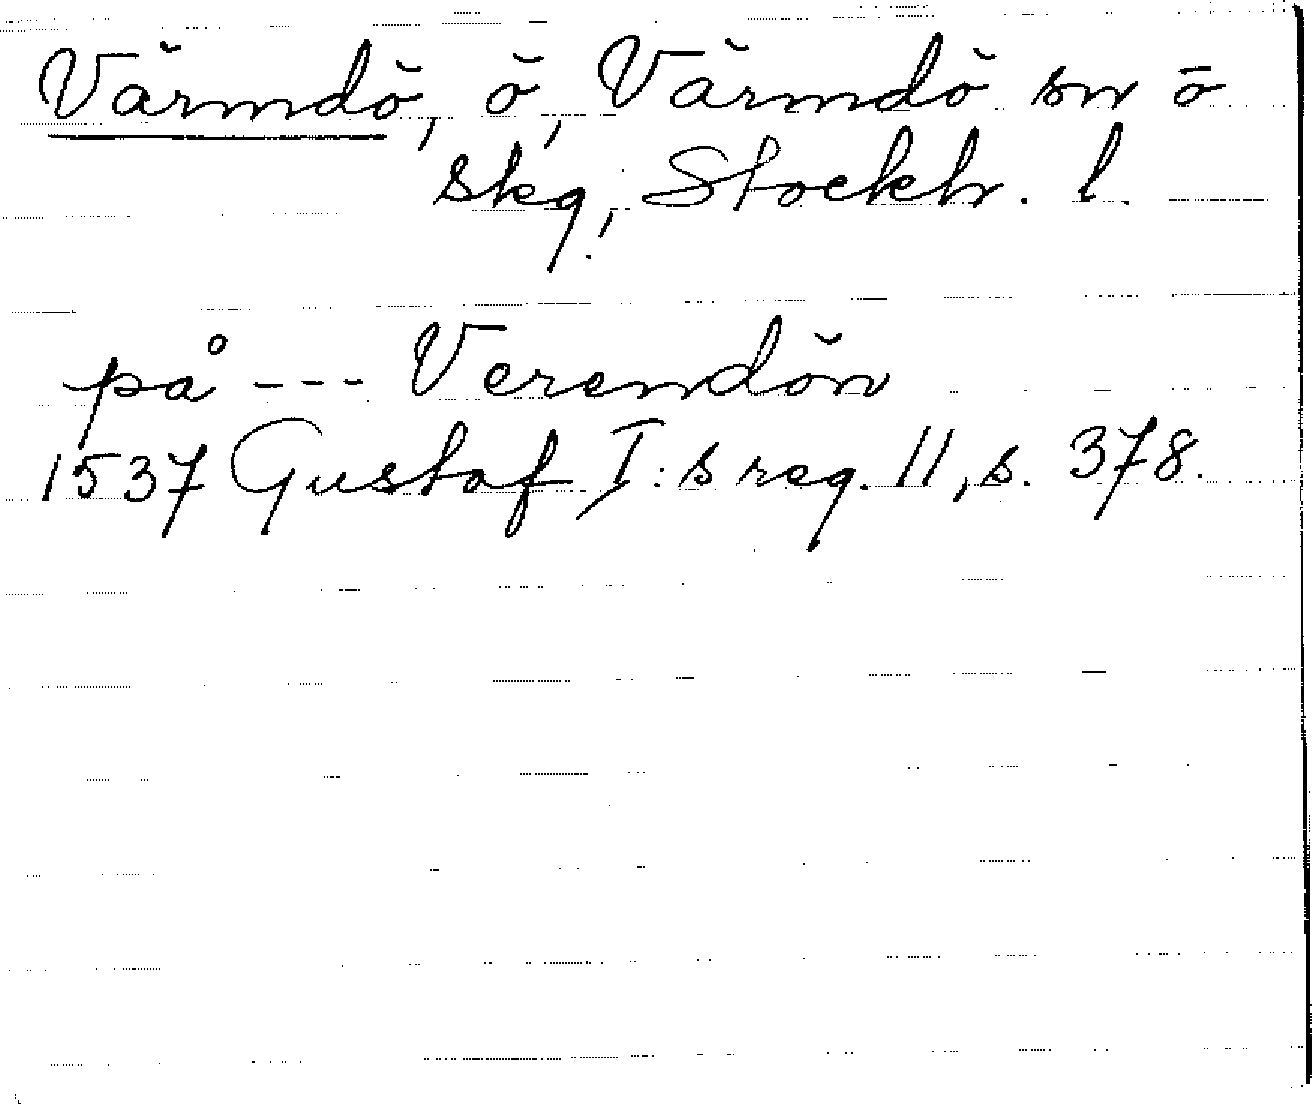 Värmdö, ö, Värmdö sn o
skg, Stockh. l.
på --- Verendön
1537 Gustaf I:s reg. 11, s. 378.